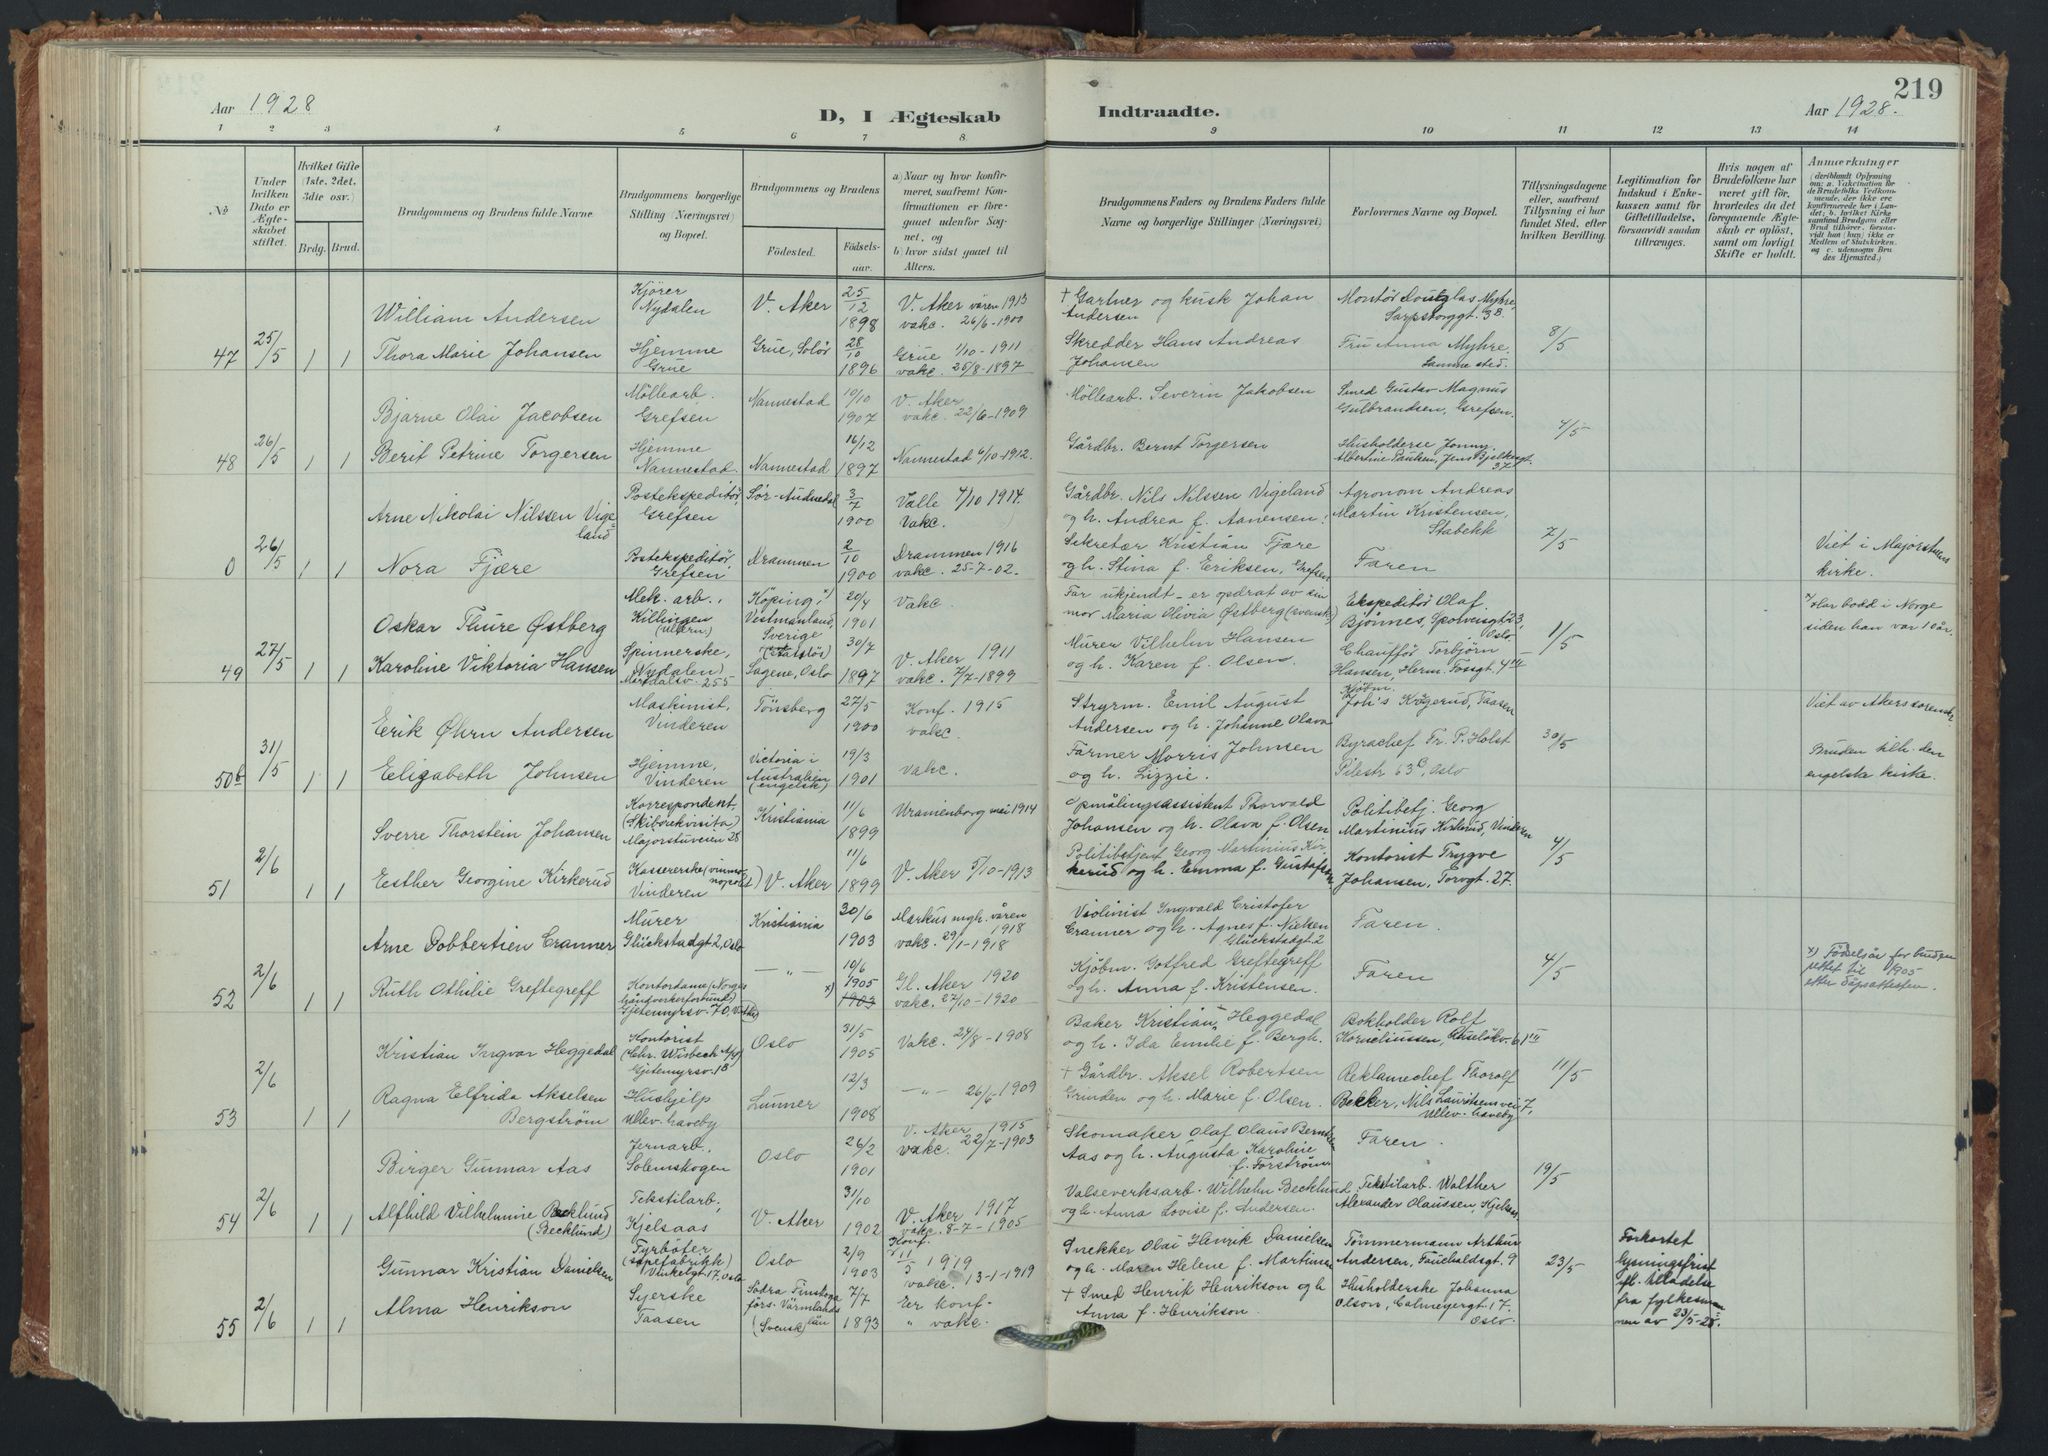 219
Aar 1928
D, I Ægteskab
Indtraadte.
Aar 1928.
1 2 3 4 5 6 7 8. 9 10 11 12 13 14
No
Under hvilken Dato er Ægteskabet stiftet.
Hvilket Gifte (1ste, 2det, 3die osv.)
Brdg. Brud.
Brudgommens og Brudens fulde Navne.
Brudgommens borgerlige Stilling (Næringsvei) og Bopæl.
Brudgommens og Brudens
Fødested.
Fødselsaar.
a) Naar og hvor konfirmeret, saafremt Konfirmationen er foregaaet udenfor Sognet, og
b) hvor sidst gaaet til Alters.
Brudgommens Faders og Brudens Faders fulde Navne og borgerlige Stillinger (Næringsvei)
Forlovernes Navne og Bopæl.
Tillysningsdagene eller, saafremt Tillysning ei har fundet Sted, efter hvilken Bevilling.
Legitimation for Indskud i Enkekassen samt for Giftetilladelse, forsaavidt saadan tiltrænges.
Hvis nogen af Brudefolkene har været gift før, hvorledes da det foregaaende Ægteskab er opløst, samt om lovligt Skifte er holdt.
Anmerkninger (deriblandt Oplysning om: a. Vakcination for de Brudefolks Vedkommende, der ikke ere konfirmerede her i Landet; b. hvilket Kirkesamfund Brudgom eller Brud tilhører, forsaavidt han (hun) ikke er Medlem af Statskirken, og c. udensogns Brudes Hjemsted.)
William Andersen
Kjører Nydalen
V. Aker
25/12 1898
V. Aker våren 1913 vakc. 26/6-1900
+ Gartner og kusk Johan Andersen
Montør Douglas Myhre, Sarpsborggt. 3B.
47 25/5 1 1 Thora Marie Johansen
Hjemme Grue
Grue, Solør
28/10 1896
Grue 1/10-1911 vakc. 25/8-1897
Skredder Hans Andreas Johansen
Fru Anna Myhre, samme sted.
8/5
Bjarne Olai Jacobsen
Möllearb. Grefsen
Nannestad
19/10 1907
V. Aker vakc. 22/6-1909
Möllearb. Severin Jakobsen
Smed Gustav Magnus Gulbrandsen, Grefsen.
48 26/5 1 1 Berit Petrine Torgersen
Hjemme Nannestad.
Nannestad
16/12 1897
Nannestad 6/10-1912.
Gårdbr. Bernt Torgersen
Husholderse Jonny Albertine Bauken, Jens Bjelkesgt. 37
4/5
Arne Nikolai Nilssen Vigeland
Postekspeditør, Grefsen
Sör-Audnedal
3/7 1900
Valle 4/10 1914. Vakc.
Gårdbr. Nils Nilssen Vigeland og h. Andrea f. Aanensen.
Agronom Andreas Martin Kristensen, Stabekk
0 26/5 1 1 Nora Fjære
Postekspeditör, Grefsen
Drammen
2/10 1900
Drammen 1916 vakc. 25-7-02.
Sekretær Kristian Fjære og h. Stina f. Eriksen, Grefsen
Faren
7/5
Viet i Majorstuens kirke.
Oskar Thure Østberg
Mek. arb., Killingen (Ullern)
Köping, x) Vestmanland, Sverige (statslös)
20/4 1901
Vakc.
Far ukjendt - er opdrat av sin mor Maria Olivia Østberg (svensk)
Ekspeditör Olaf Bjönnes, Spolveisgt 23, Oslo
x) Har bodd i Norge siden han var 10 år.
49 27/5 1 1 Karoline Viktoria Hansen
Spinnerske, Nydalen, Maridalsv. 255
Sagene, Oslo
30/7 1897
V. Aker 1911 vakc. 7/7-1899
Murer Vilhelm Hansen og h. Karen f. Olsen.
Chauffør Torbjörn Hansen, Herm. Fossgt. 4 III
11/5
Eerik Öhrn Andersen
Maskinist, Vinderen
Tönsberg
27/5 1900
Konf. 1915 vakc.
Styrm. Emil August Andersen og h. Johanne Olava
Kjøbm. Joh's Krögerud, Taasen
Viet av Akers sorenskr.
50b 31/5 1 1 Elizabeth Johnsen
Hjemme, Vinderen
Victoria i Australien (engelsk)
19/3 1901
Vakc.
Farmer Morris Johnsen og h. Lizzie.
Byrachef Fr. P. Holst Pilestr 63B, Oslo
30/5
Bruden tilh. den engelske kirke.
Sverre Thorstein Johansen
Korrespondent, (Skiborekvisita) Majorstuveien 28
Kristiania
11/6 1899
Uranienborg mai 1914
Opmålingsassistent Thorvald Johansen og h. Olava f. Olsen
Politibetj. Georg Martinius Kirkerud, Vinderen
51 2/6 1 1 Esther Georgine Kirkerud
Kassererske (vinmonopolet) Vinderen
V. Aker
11/6 1899
V. Aker 5/10-1913
Politibetjent Georg Martinius Kirkerud og h. Emma f. Gustafsen
Kontorist Trygve Johansen, Torvgt. 27.
4/5
Arne Dobbertien Cranner
Murer Glückstadgt 2, Oslo
Kristiania
30/6 1903
Markus mgh. våren 1918 vakc. 29/1-1918
Violinist Ingvald Cristofer Cranner og h. Agnes f. Nielsen Glückstadgt. 2
Faren.
52 2/6 1 1 Ruth Othilie Greftegreff
Kontordame (Norges håndverkerforbund) Gjetemyrsv. 70,
— " —
10/6 1905 x) 1903
Gl. Aker 1920 vakc. 27/10-1920
Kjøbm. Gotfred Greftegreff og h. Anna f. Kristensen.
Faren
4/5
x) Födselsår for bruden rettet til 1905 etter dåpsattesten.
Kristian Ingvar Heggedal
Kontorist (Chr. Wisbech A/s) Gjetemyrsv. 1B
Oslo
31/5 1905
Vakc. 24/8-1908
Baker Kristian Heggedal og h. Ida Emilie f. Bergh.
Bokholder Rolf Korneliussen, Ruselökv. 61 III
53 2/6 1 1 Ragna Elfrida Akselsen Bergström
Hushjelp Ullev. haveby
Lunner
12/3 1908
— " — 26/6 1909
+ Gårdbr. Aksel Robertsen Grinden og h. Marie f. Olsen.
Reklamechef Thorolf Bekker, Nils Lauritsensvei 7, Ullev. haveby
11/5
Birger Gunnar Aas
Jernarb., Solemskogen
Oslo
26/2 1901
V. Aker 1915 vakc. 22/7-1903
Skomaker Olaf Olaus Berntsen Aas og h. Augusta Karoline f. Forström
Faren.
54 2/6 1 1 Alfhild Vilhelmine Becklund (Becklund)
Tekstilarb, Kjelsaas
V. Aker
31/10 1902
V. Aker 1917 vakc. 8-7-1905
Valseverksarb. Wilhelm Becklund, og h. Anna Lovise f. Andersen.
Tekstilarb. Walther Alexander Olaussen, Kjelsaas
19/5
Gunnar Kristian Danielsen
Fyrböter (såpefabrikk) Vinkelgt. 17, Oslo
Oslo
2/9 1903
Konf. 11/5 1919 vakc. 13-1-1919
Snekker Olai Henrik Danielsen og h. Maren Helene f. Martinsen
Tömmermann Arthur Andersen, Fauchaldsgt. 9
23/5
Forkortet lysningsfrist efl. tilladelse fra fylkesmannen av 23/5-28.
55 2/6 1 1 Alma Henrikson
Syerske Taasen
Södra Finskoga förs. Värmlands län (Svensk)
7/7 1893
Er konf. " vakc.
+ Smed Henrik Henrikson og h Anna f. Henrikson.
Husholderske Johanna Olson, Calmeyergt. 17. Oslo